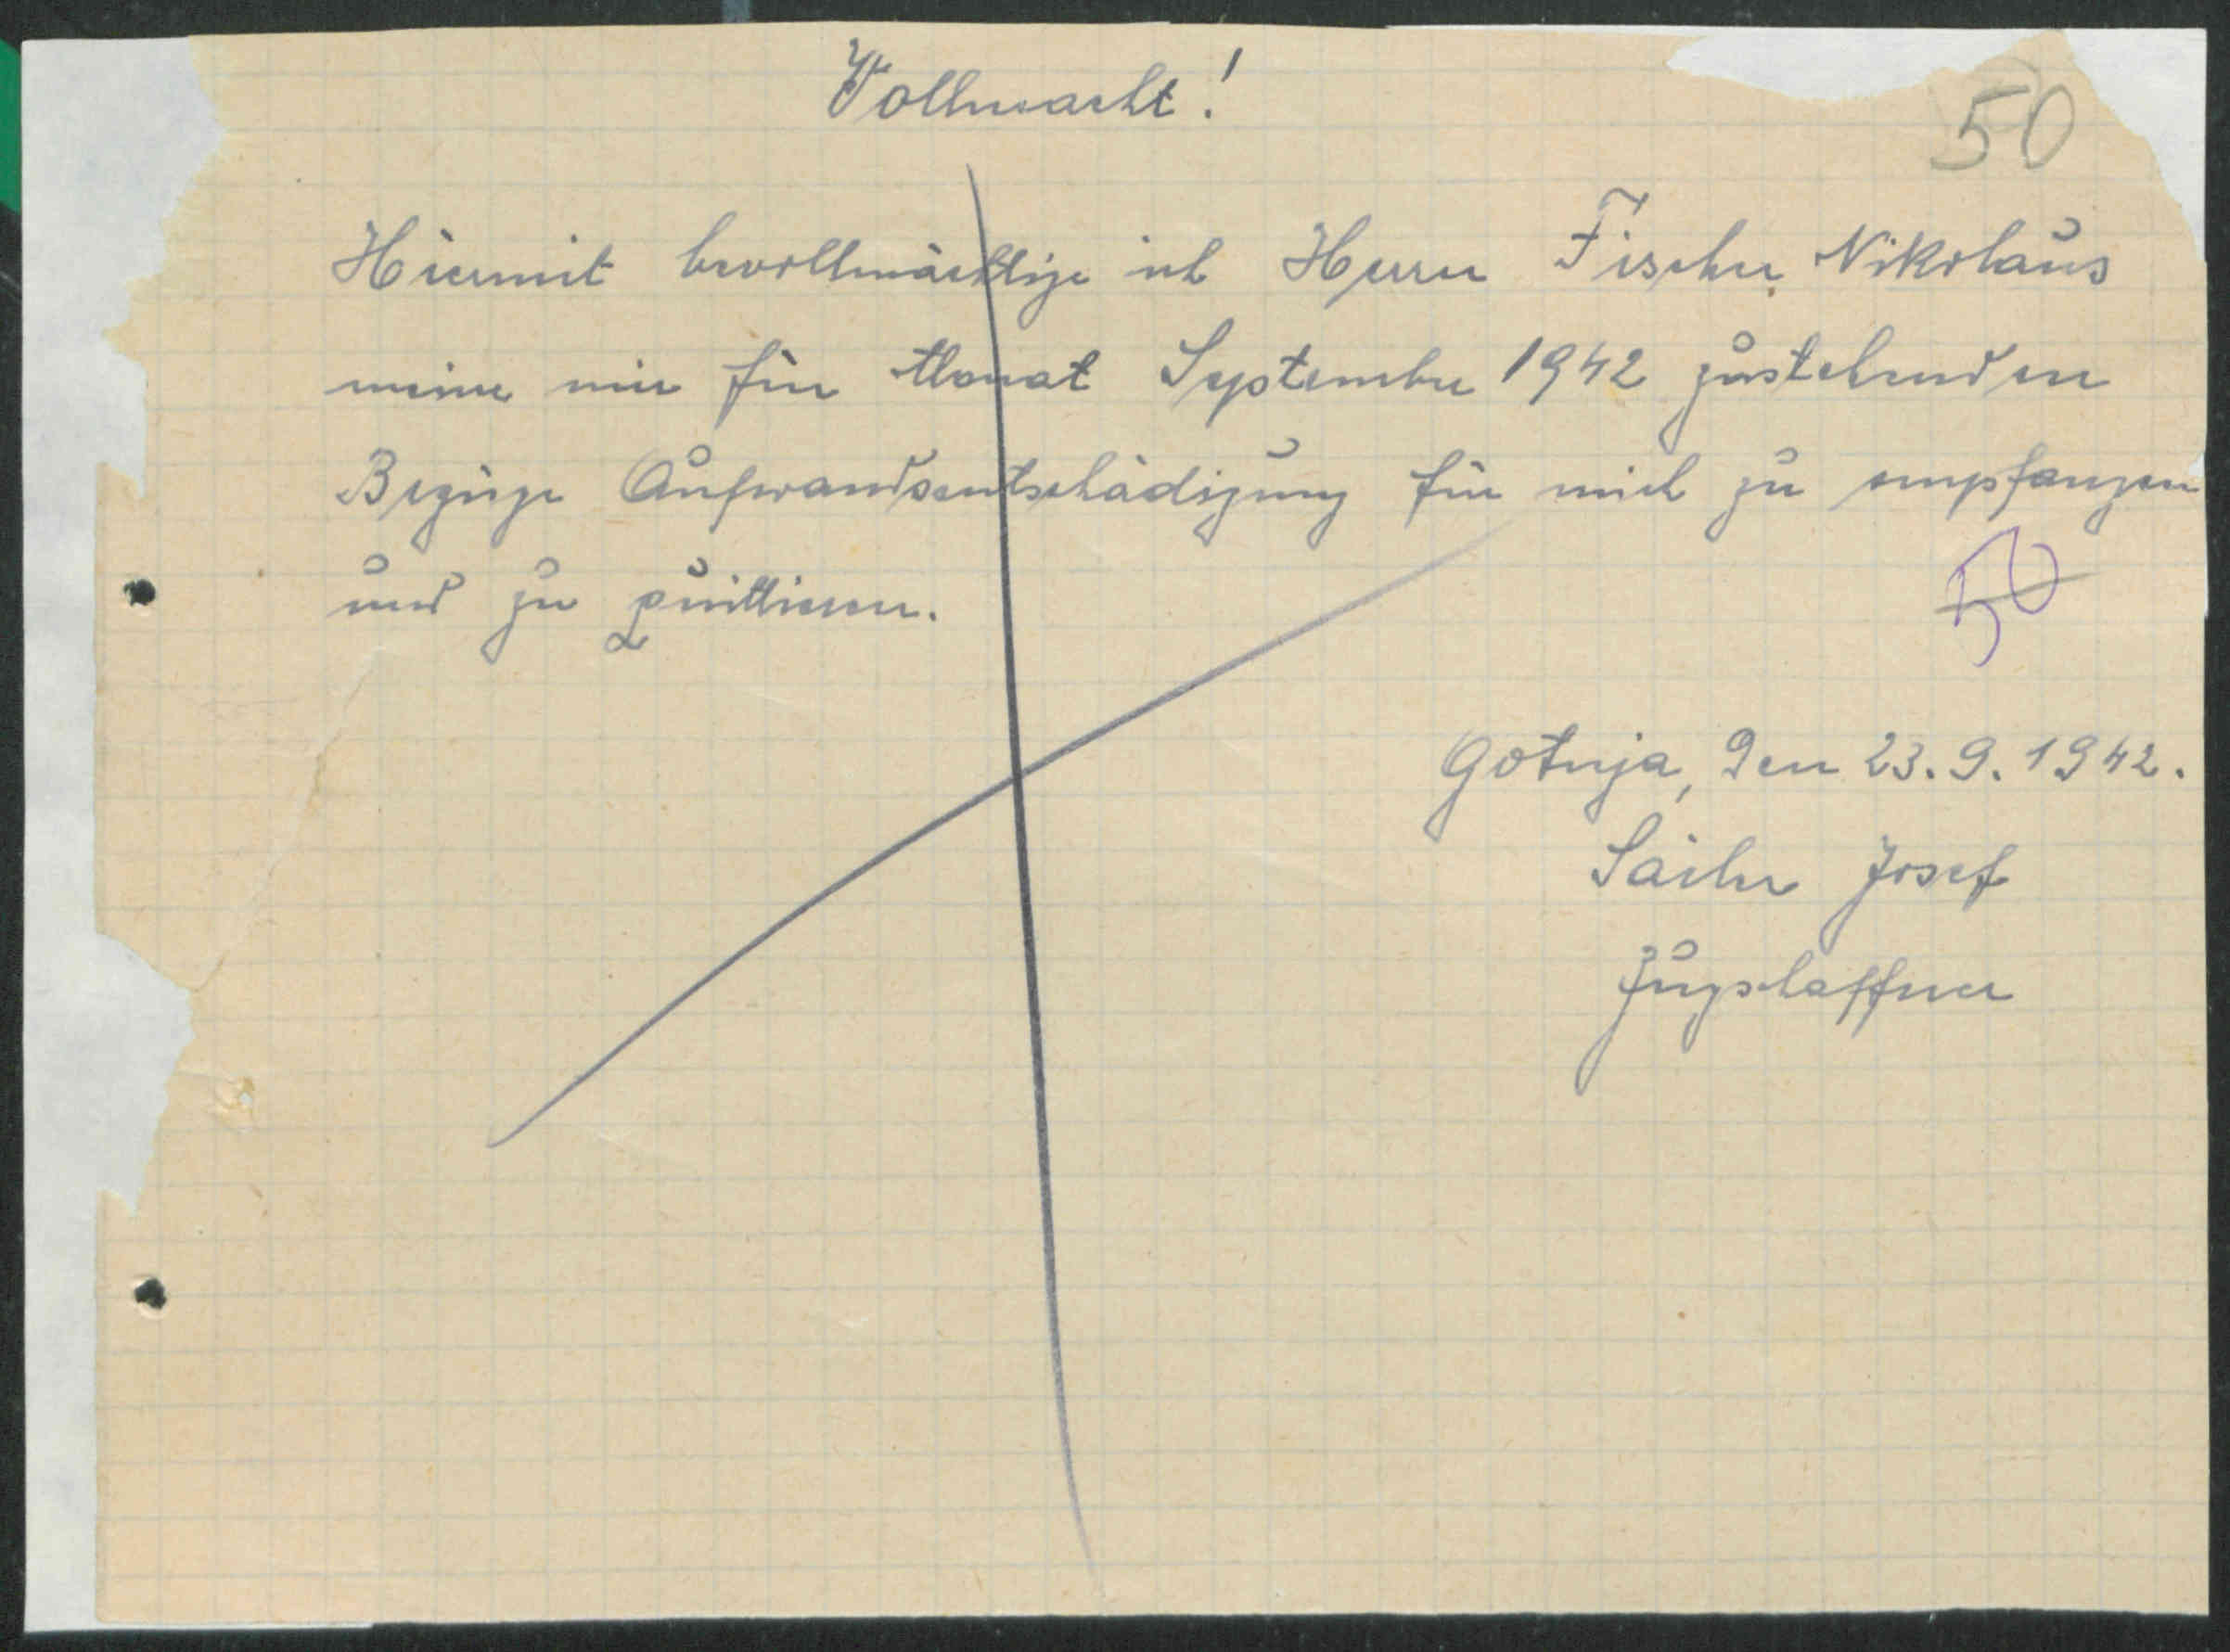 Vollmacht!
50
Hiermit bevollmächtige ich Herrn Fischer Nikolaus
meine mir für Monat September 1942 zustehenden
Bezüge Aufwandsentschädigung für mich zu empfangen
und zu quittieren.
50
Gotnja, den 23.9.1942.
Josef
Zugschaffner